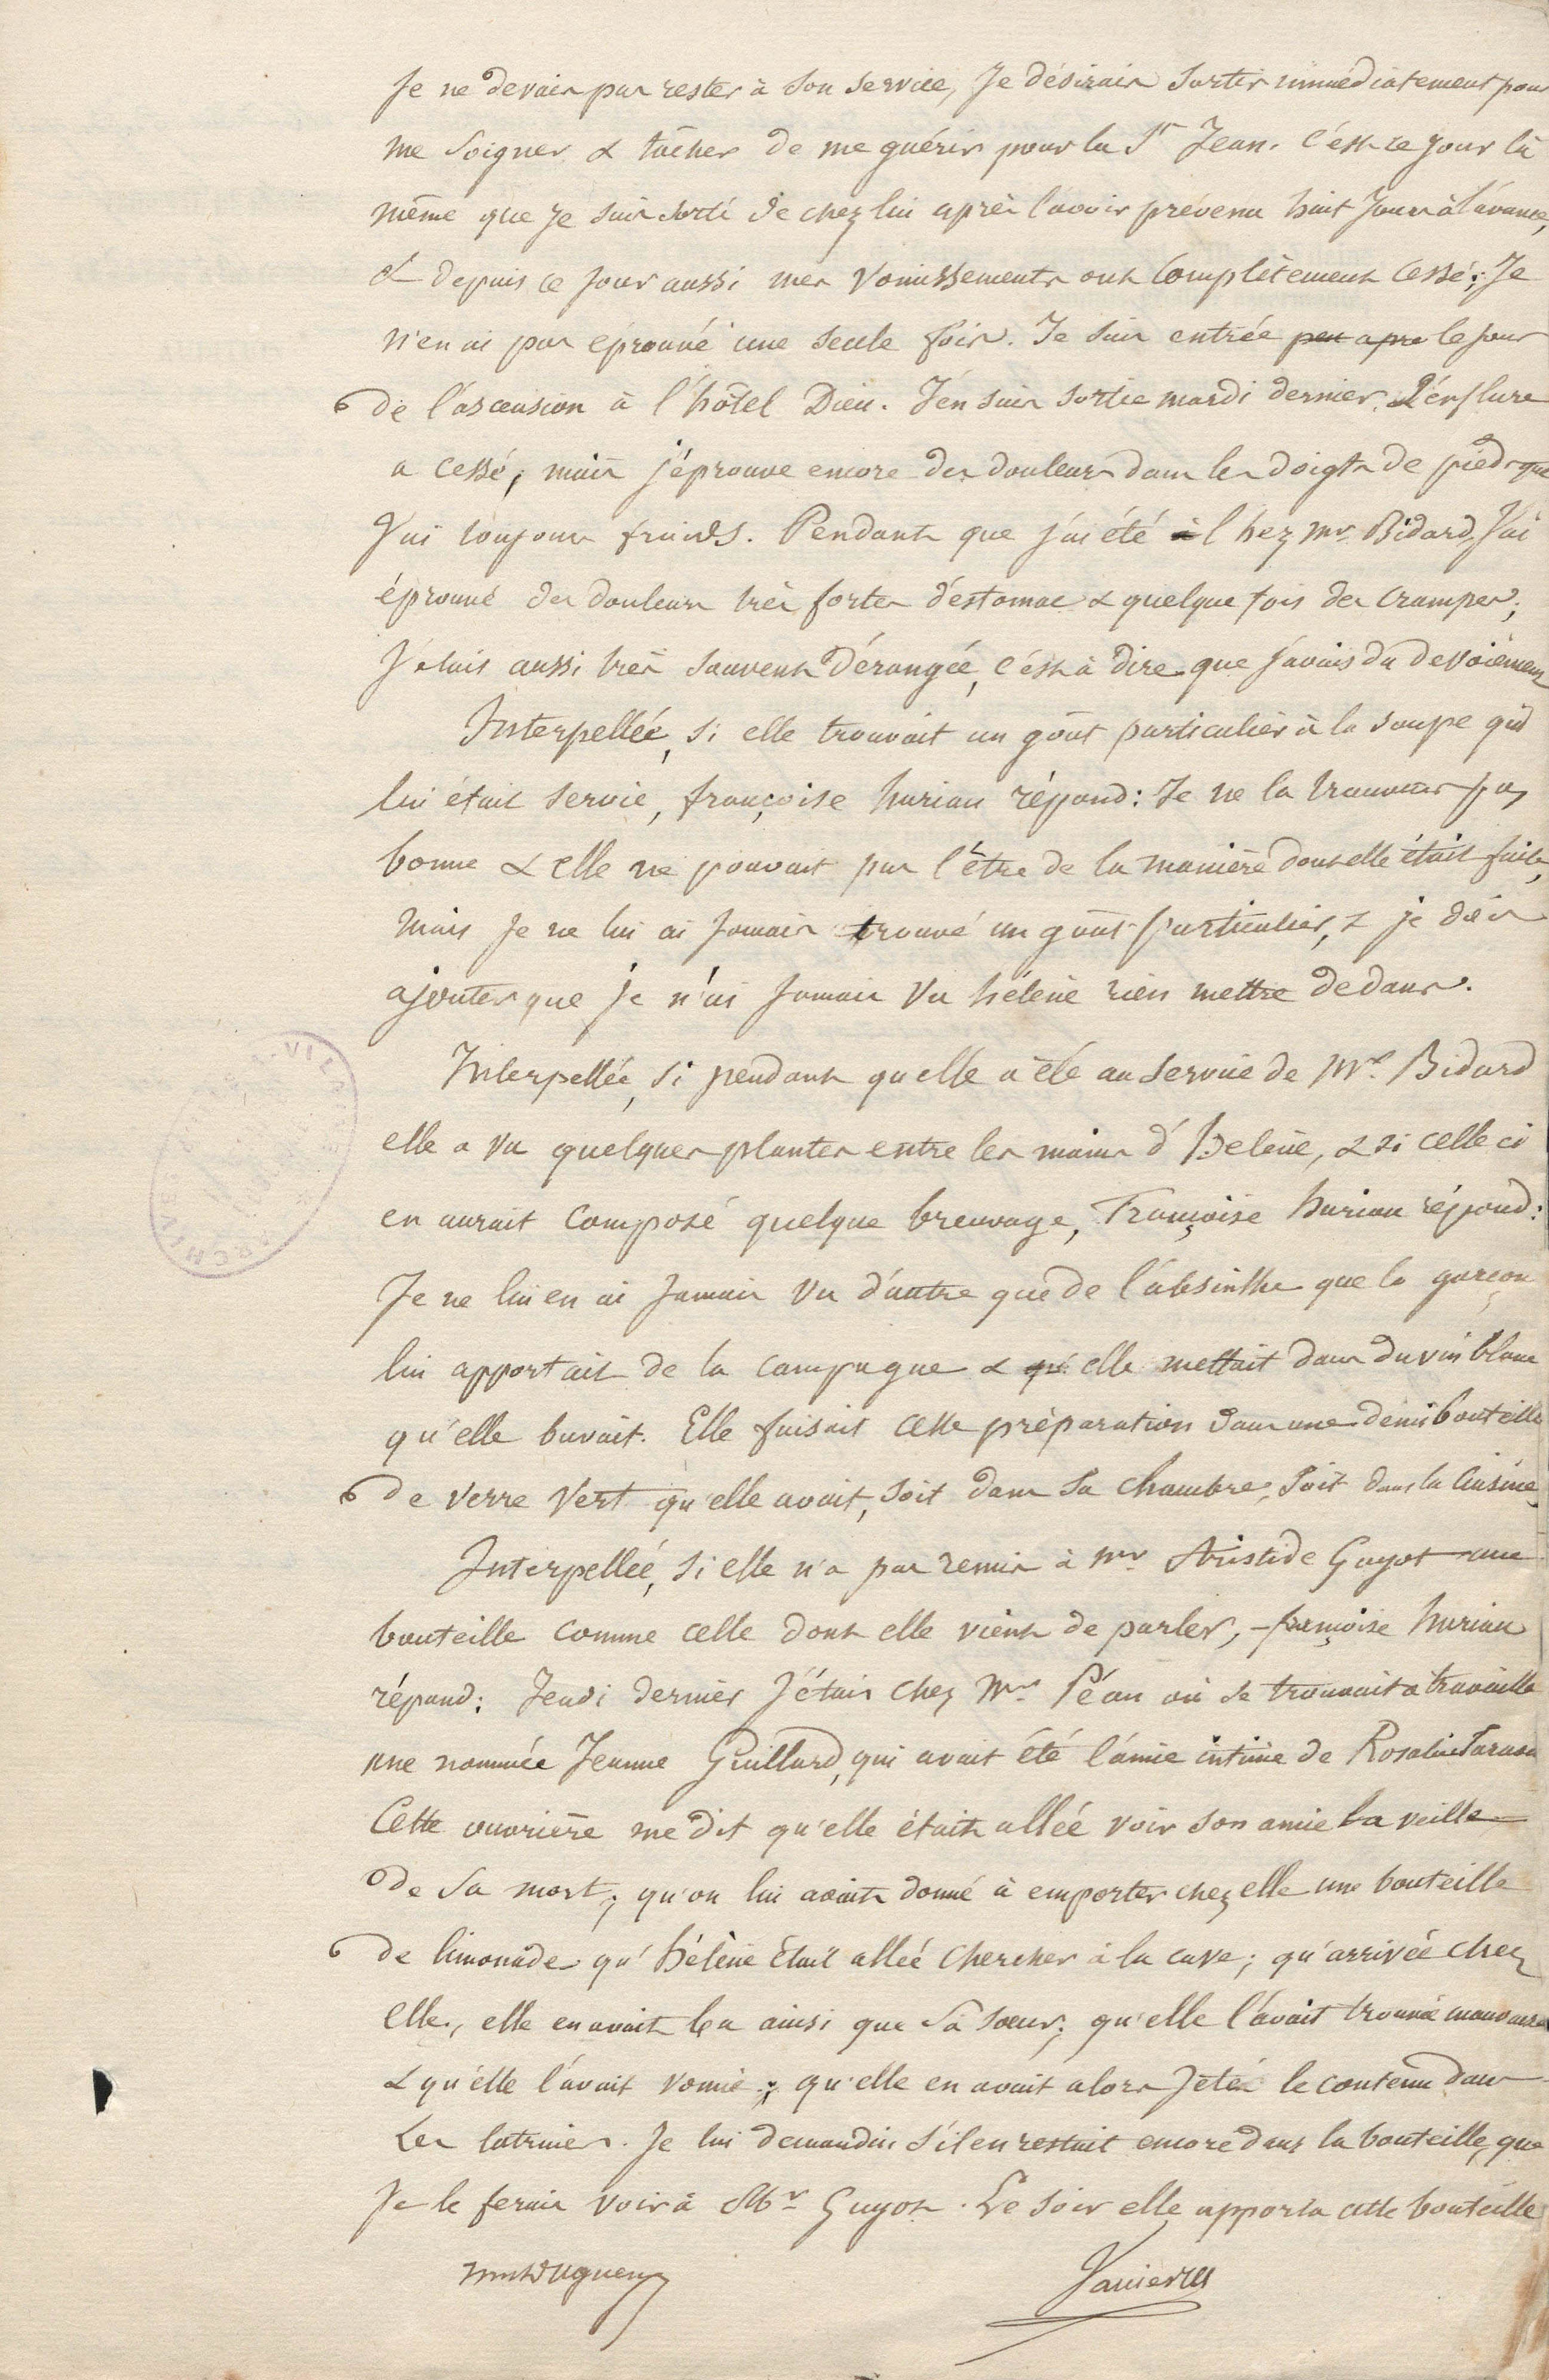 Je ne devais pas rester à son service, Je désirais sortir immédiatement pour
me soigner & tâcher de me guérir pour la St Jean. C'est ce jour là
même que je suis sorti de chez lui après l'avoir prévenu huit jours à l'avance,
& depuis ce jour aussi mes vomissements ont complètement cessé; Je
n'en ai pas éprouvé une seule fois. Je suis entrée peu apre le jour
de l'ascension à l'hôtel Dieu. J'en suis sortie mardi dernier. L'enflure
a cessé, mais j'éprouve encore des douleurs dans les doigts de pieds que
J'ai toujours froids. Pendant que j'ai été à Chez Mr Bidard, J'ai
éprouvé des douleurs très fortes d'estomac & quelque fois des crampes;
J'étais aussi très souvent dérangée, c'est à dire que j'avais du dévoiement
Interpellée, si elle trouvait un goût particulier à la soupe qui
lui était servie, françoise huriau répond: Je ne la trouvais pas
bonne & elle ne pouvait pas l'être de la manière dont elle était faite,
mais Je ne lui ai Jamais trouvé un goût particulier, & je dois
ajouter que je n'ai Jamais vu hélène rien mettre dedans.
Interpellée, si pendant qu'elle a été au service de Mr. Bidard
elle a vu quelques plantes entre les mains d'hélène, & si celle ci
en aurait composé quelque breuvage, Françoise huriau répond:
Je ne lui en ai Jamais vu d'autre que de l'absinthe que le garçon
lui apportait de la campagne & qu' elle mettait dans du vin blanc
qu'elle buvait. Elle faisait cette préparation dans une demi bouteille
de verre vert qu'elle avait, soit dans sa chambre, soit dans la cuisine.
Interpellée, si elle n'a pas remis à Mr. Aristide Guyot une
bouteille comme celle dont elle vient de parler, - françoise huriau
répond: Jeudi dernier J'étais chez Mr. Péan où se trouvait à travailler
une nommée Jeanne Guillard, qui avait été l'amie intime de Rosalie Sarrazin
Cette ouvrière me dit qu'elle était allée voir son amie la veille
de sa mort; qu'on lui avait donné à emporter chez elle une bouteille
de limonade qu'hélène était allée chercher à la cave; qu'arrivée chez
elle, elle en avait bu ainsi que sa sœur; qu'elle l'avait trouvée mauvaise
& qu'elle l'avait vomie; qu'elle en avait alors jeté le contenu dans
Les latrines. Je lui demandais s'il en restait encore dans la bouteille, que
Je le ferais voir à Mr Guyot. Le soir elle apporta cette bouteille